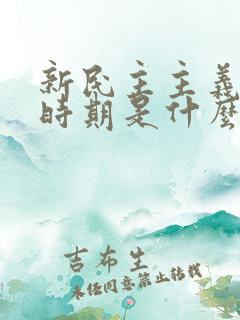 新民主主義
時期是什麼
吉布生
未经同意禁止转载